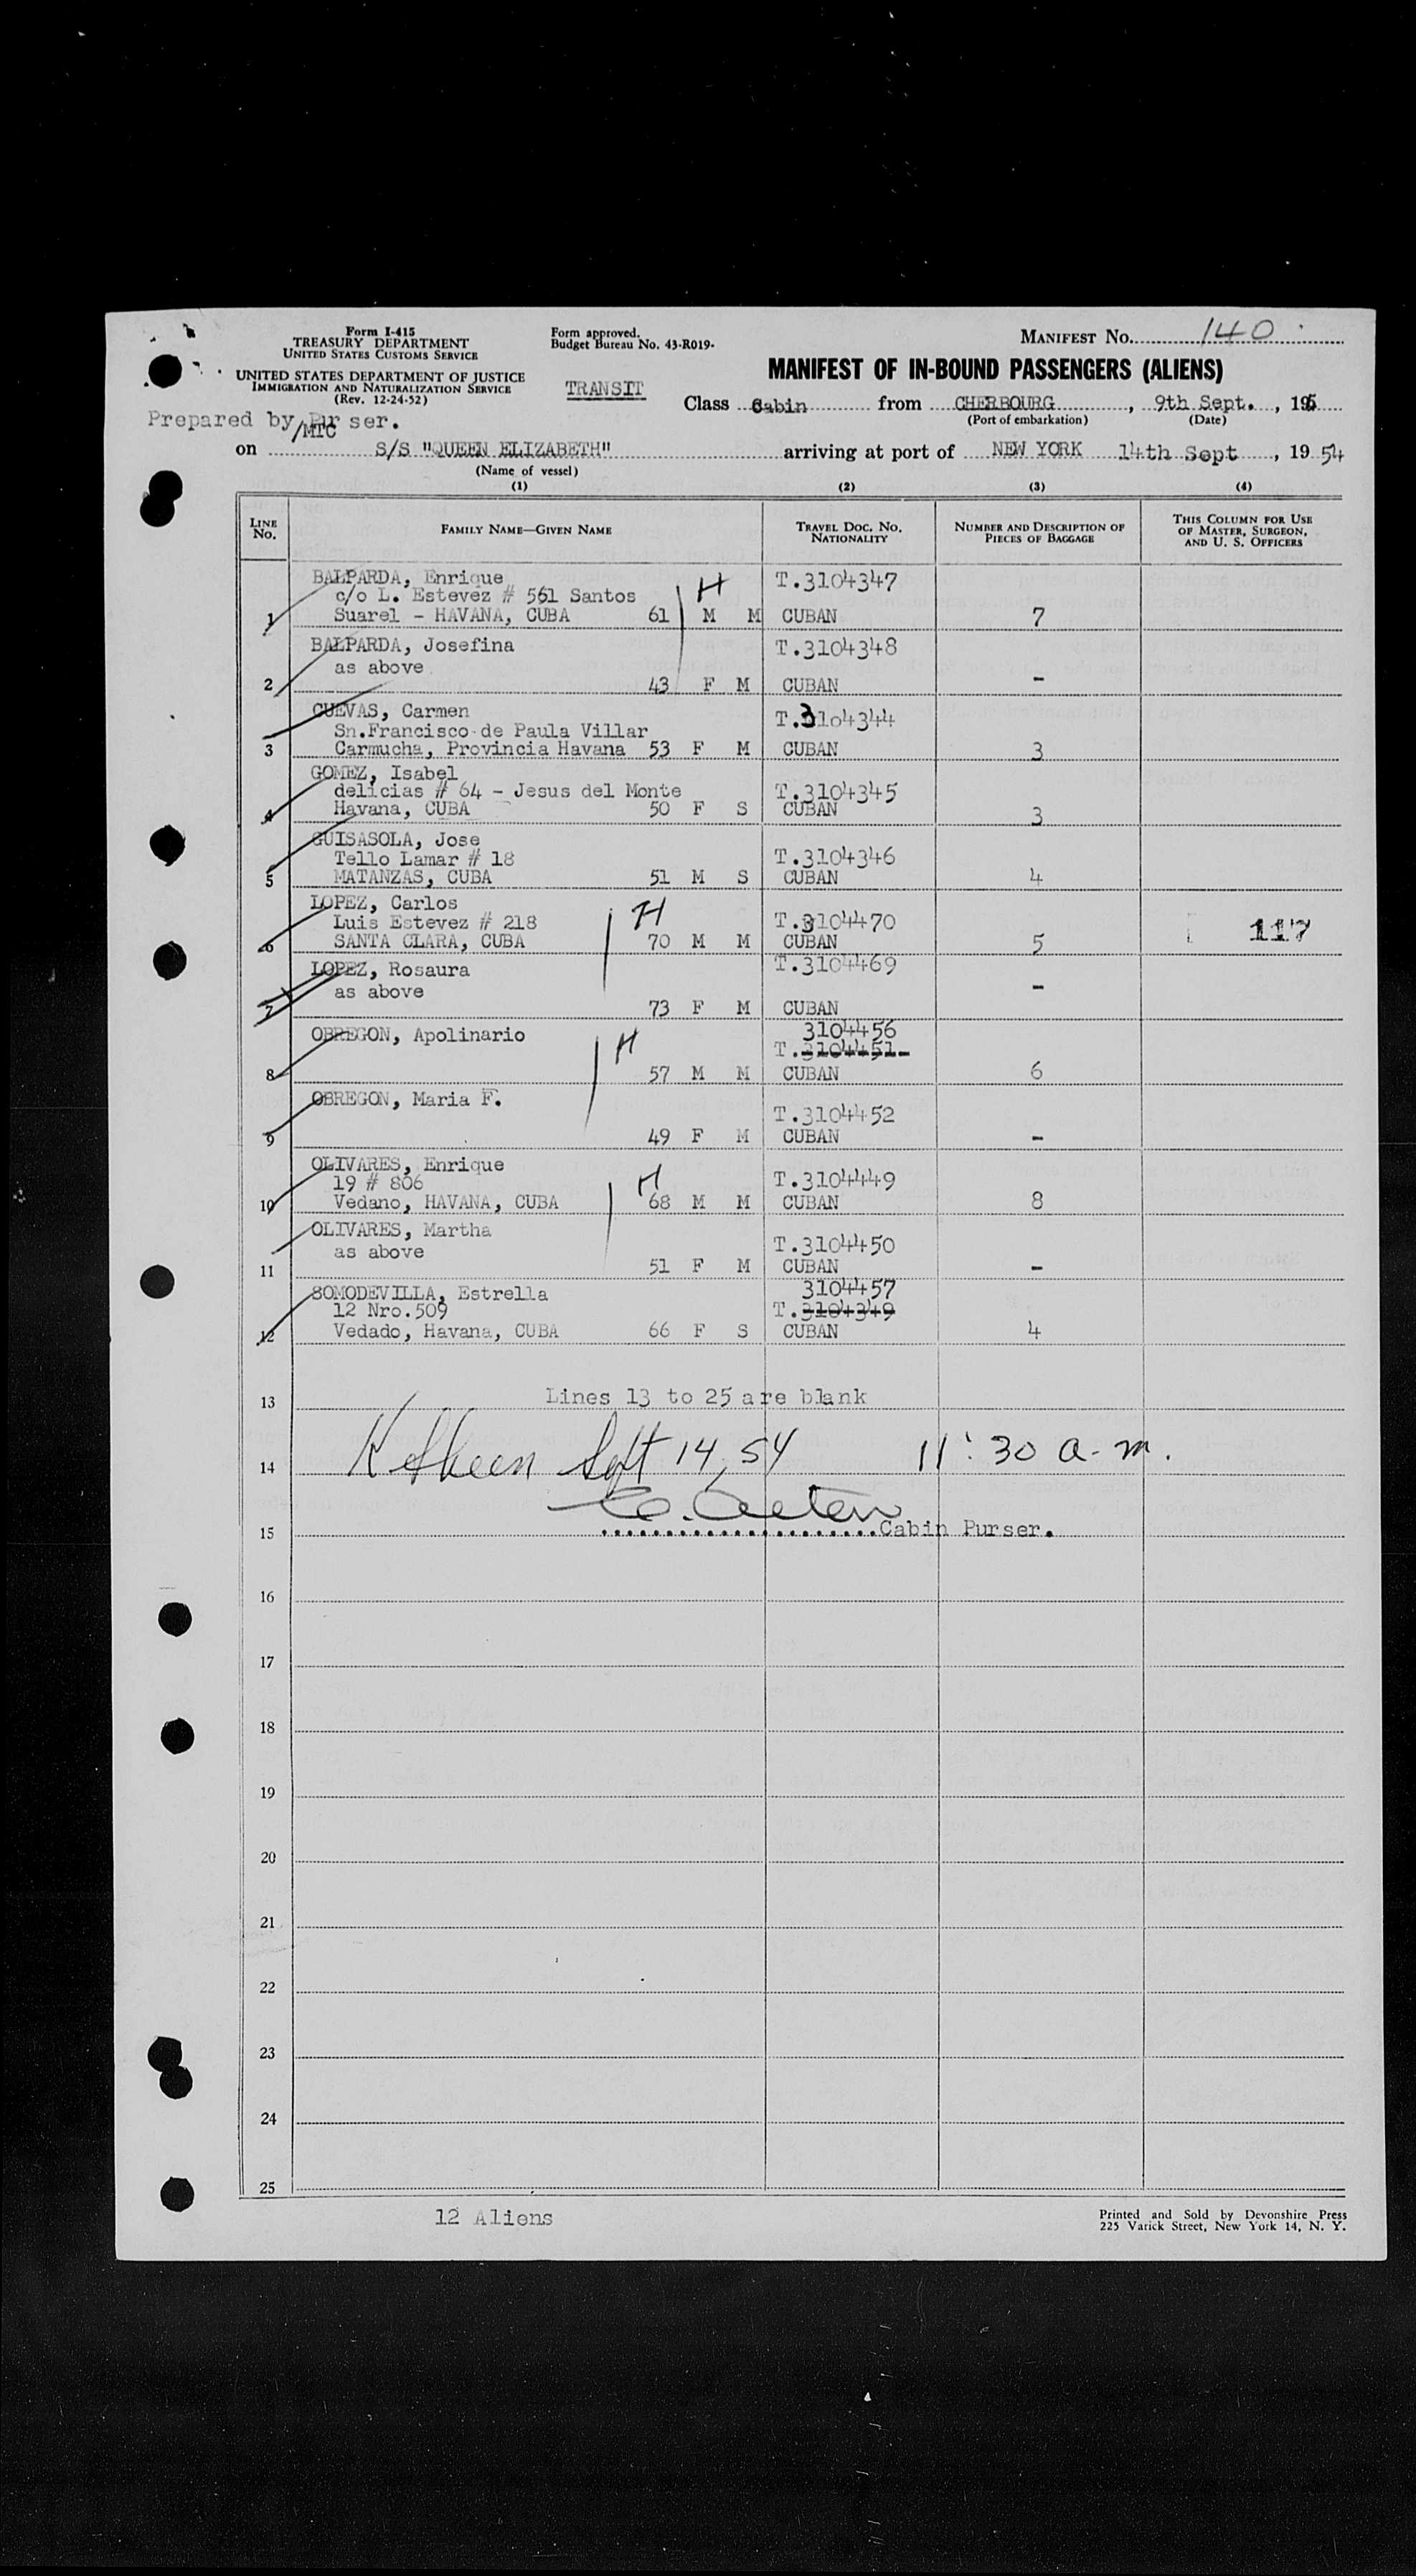 Form I-415
TREASURY DEPARTMENT
UNITED STATES CUSTOMS SERVICE
UNITED STATES DEPARTMENT OF JUSTICE
IMMIGRATION AND NATURALIZATION SERVICE
(Rev. 12-24-52)
Form approved.
Budget Bureau No. 43-R019-
TRANSIT
MANIFEST No. 140
MANIFEST OF IN-BOUND PASSENGERS (ALIENS)
Class Cabin from CHERBOURG, 9th Sept., 195
(Port of embarkation) (Date)
Prepared by Purser.
/MTC
on S/S "QUEEN ELIZABETH" arriving at port of NEW YORK 14th Sept, 19 54
(Name of vessel)
(1) (2) (3) (4)
LINE No. FAMILY NAME—GIVEN NAME TRAVEL DOC. NO. NATIONALITY NUMBER AND DESCRIPTION OF PIECES OF BAGGAGE THIS COLUMN FOR USE OF MASTER, SURGEON, AND U. S. OFFICERS
BALPARDA, Enrique H T.3104347
c/o L. Estevez # 561 Santos
1 Suarel - HAVANA, CUBA 61 M M CUBAN 7
BALPARDA, Josefina T.3104348
as above
2 43 F M CUBAN -
CUEVAS, Carmen T.3104344
Sn.Francisco de Paula Villar
3 Carmucha, Provincia Havana 53 F M CUBAN 3
GOMEZ, Isabel
delicias # 64 - Jesus del Monte T.3104345
4 Havana, CUBA 50 F S CUBAN 3
GUISASOLA, Jose
Tello Lamar # 18 T.3104346
5 MATANZAS, CUBA 51 M S CUBAN 4
LOPEZ, Carlos H
Luis Estevez # 218 T.3104470
6 SANTA CLARA, CUBA 70 M M CUBAN 5 117
LOPEZ, Rosaura T.3104469
as above -
7 73 F M CUBAN
OBREGON, Apolinario H 3104456
T.3104451
8 57 M M CUBAN 6
OBREGON, Maria F. T.3104452
9 49 F M CUBAN -
OLIVARES, Enrique H
19 # 806 T.3104449
10 Vedano, HAVANA, CUBA 68 M M CUBAN 8
OLIVARES, Martha
as above T.3104450
11 51 F M CUBAN -
SOMODEVILLA, Estrella 3104457
12 Nro.509 T.3104349
12 Vedado, Havana, CUBA 66 F S CUBAN 4
13 Lines 13 to 25 are blank
14 Sept 14, 54 11:30 a.m.
15 Cabin Purser.
16
17
18
19
20
21
22
23
24
25
12 Aliens
Printed and Sold by Devonshire Press
225 Varick Street, New York 14, N. Y.